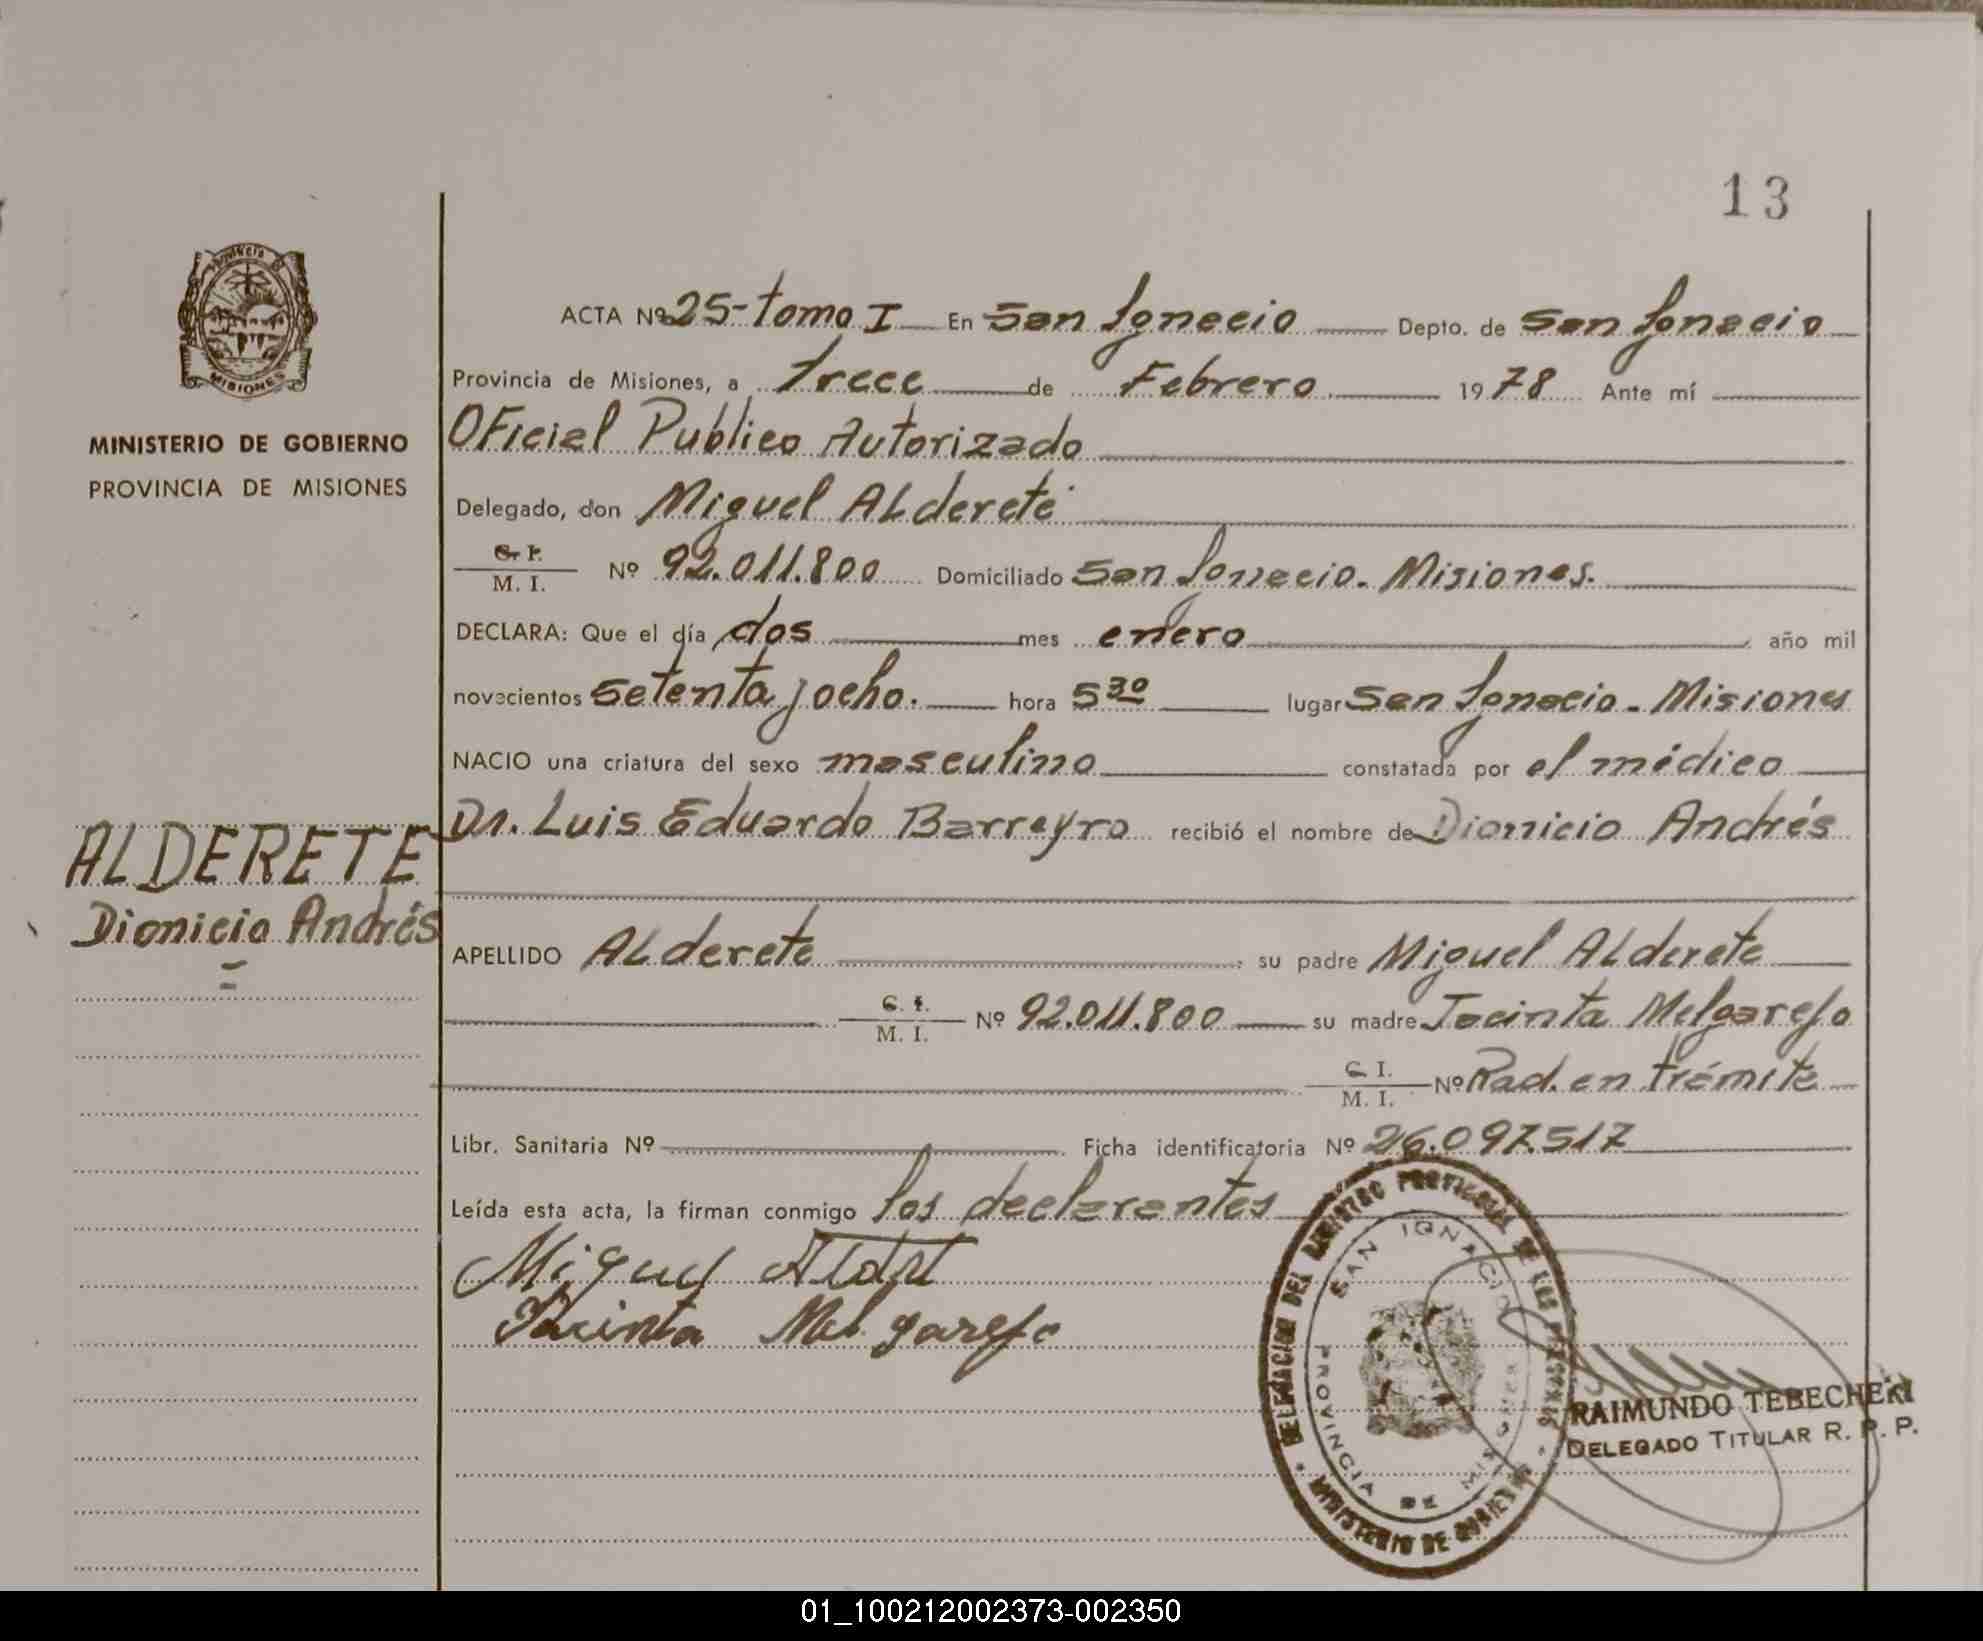 13
PROVINCIA D
MISIONES
MINISTERIO DE GOBIERNO
PROVINCIA DE MISIONES
ALDERETE
Dionicio Andrés
ACTA Nº 25-tomo I En San Ignacio Depto. de San Ignacio
Provincia de Misiones, a trece de Febrero 1978 Ante mí
Oficial Publico Autorizado
Delegado, don Miguel Alderete
C. I.
M. I. Nº 92.011.800 Domiciliado San Ignacio. Misiones.
DECLARA: Que el día dos mes enero año mil
novecientos setenta y ocho. hora 5 30 lugar San Ignacio - Misiones
NACIO una criatura del sexo masculino constatada por el médico
Dr. Luis Eduardo Barreyro recibió el nombre de Dionicio Andrés
APELLIDO Alderete su padre Miguel Alderete
C. I.
M. I. Nº 92.011.800 su madre Jacinta Melgarejo
C. I.
M. I. Nº Rad. en trámite
Libr. Sanitaria Nº Ficha identificatoria Nº 26.097.517
Leída esta acta, la firman conmigo los declarantes
Miguel
Jacinta Melgarejo
DELEGACION DEL REGISTRO PROVINCIAL DE LAS PERSONAS
SAN IGNACIO
PROVINCIA DE MISIONES
MINISTERIO DE GOBIERNO
RAIMUNDO TEBECHERI
DELEGADO TITULAR R. P. P.
01_100212002373-002350